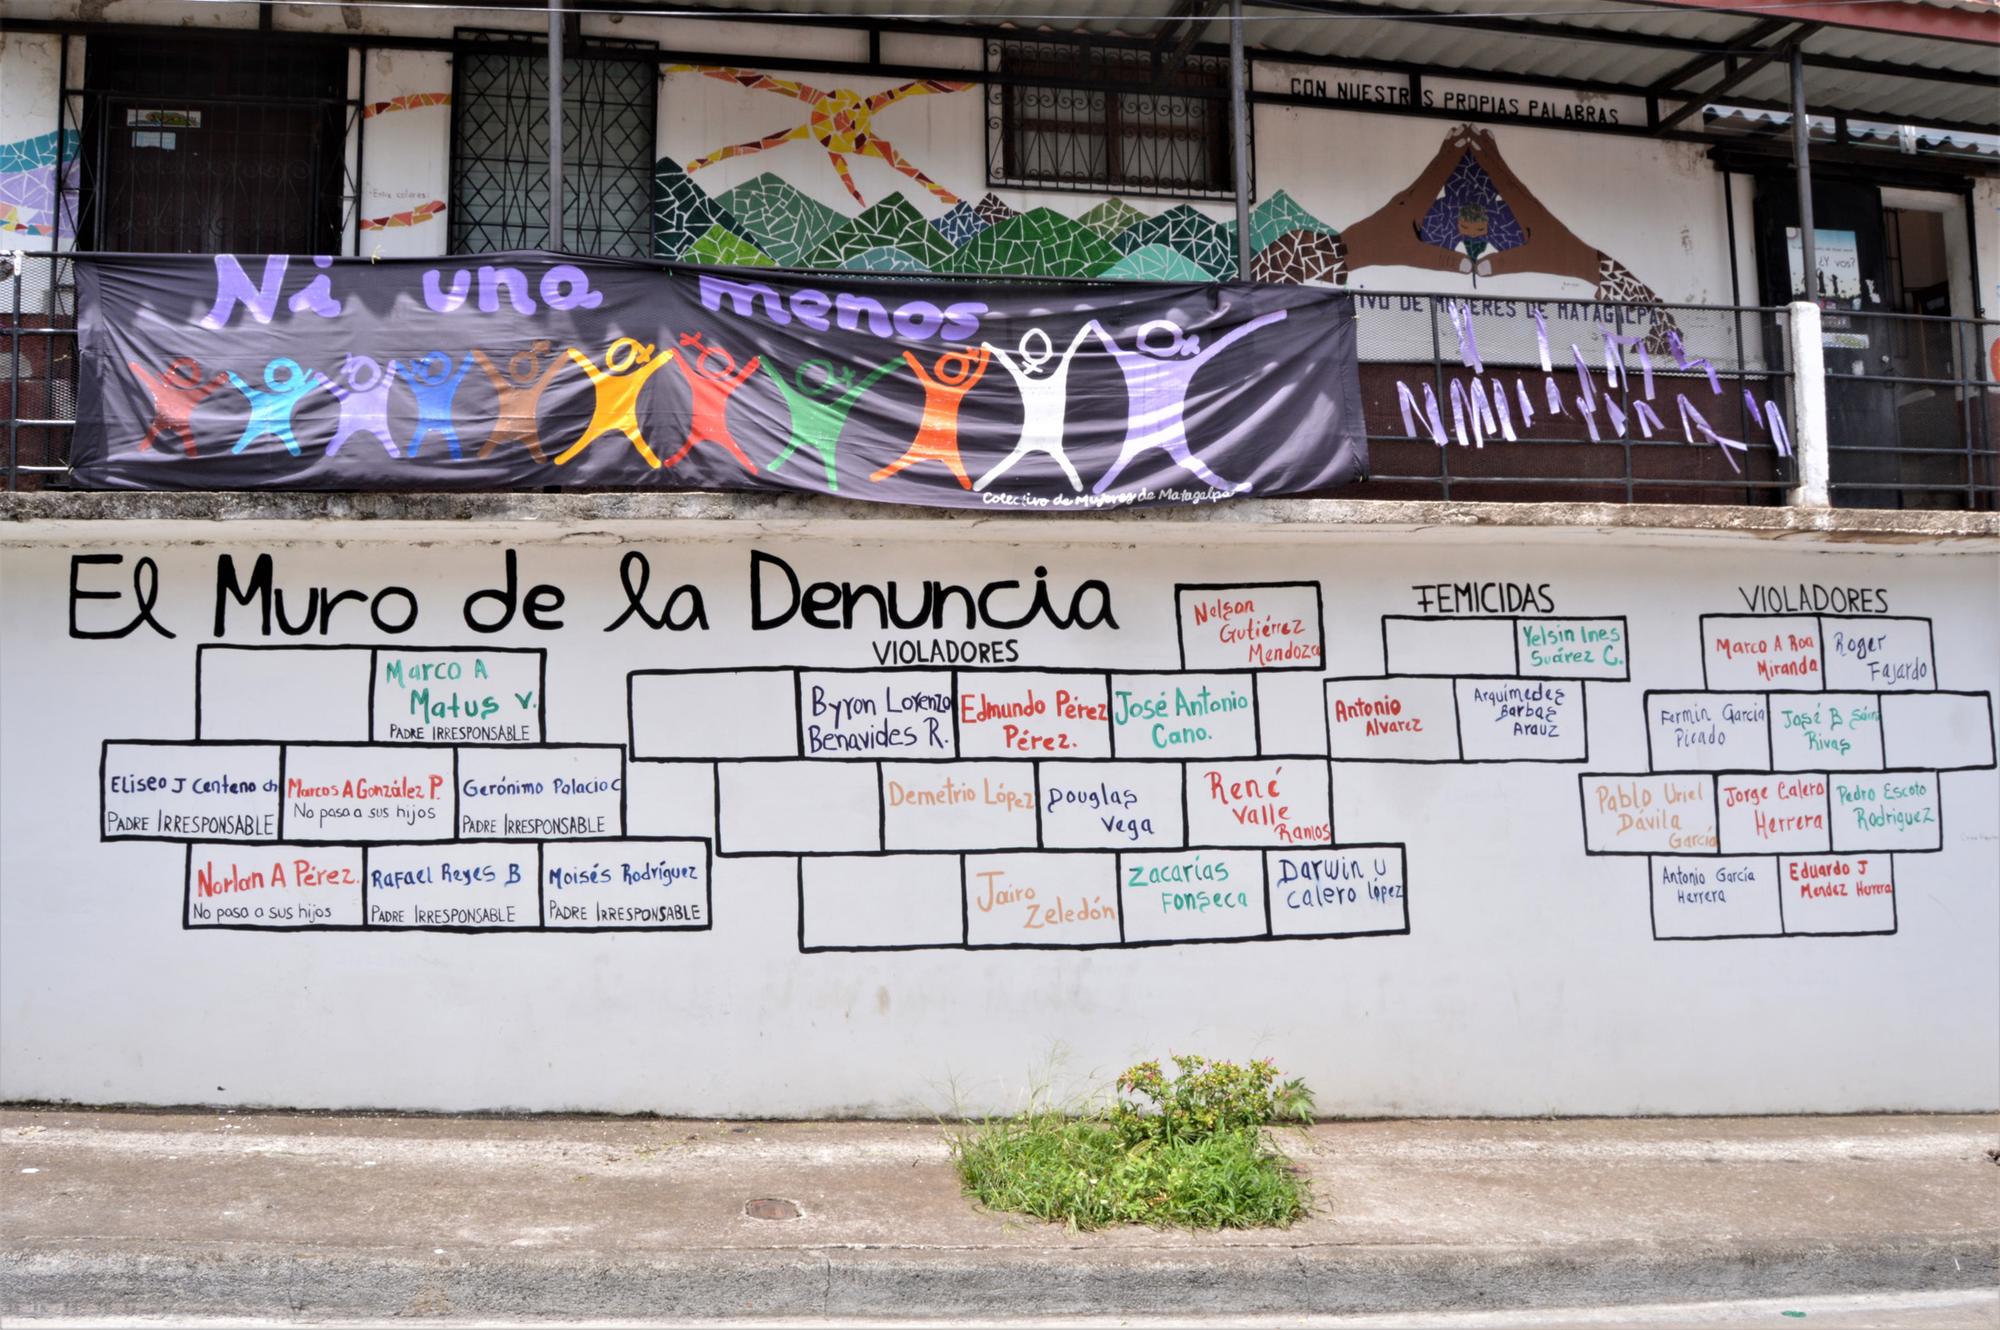 CON NUESTRAS PROPIAS PALABRAS
Entre colores
¿Y vos?
Ni una menos
IVO DE MUJERES DE MATAGALPA
Colectivo de Mujeres de Matagalpa
El Muro de la Denuncia
Marco A
Matus V.
PADRE IRRESPONSABLE
Eliseo J Centeno ch
PADRE IRRESPONSABLE
Marcos A González P.
No pasa a sus hijos
Gerónimo Palacio C
PADRE IRRESPONSABLE
Norlan A Pérez.
No pasa a sus hijos
Rafael Reyes B
PADRE IRRESPONSABLE
Moisés Rodríguez
PADRE IRRESPONSABLE
VIOLADORES
Nelson
Gutiérrez
Mendoza
Byron Lorenzo
Benavides R.
Edmundo Pérez
Pérez.
José Antonio
Cano.
Demetrio López
Douglas
Vega
René
Valle
Ramos
Jairo
Zeledón
Zacarías
Fonseca
Darwin U
Calero López
FEMICIDAS
Yelsin Ines
Suárez C.
Antonio
Alvarez
Arquímedes
Barbas
Arauz
VIOLADORES
Marco A Roa
Miranda
Roger
Fajardo
Fermin García
Picado
José B Sáinz
Rivas
Pablo Uriel
Dávila
García
Jorge Calero
Herrera
Pedro Escoto
Rodriguez
Antonio García
Herrera
Eduardo J
Mendez Herrera